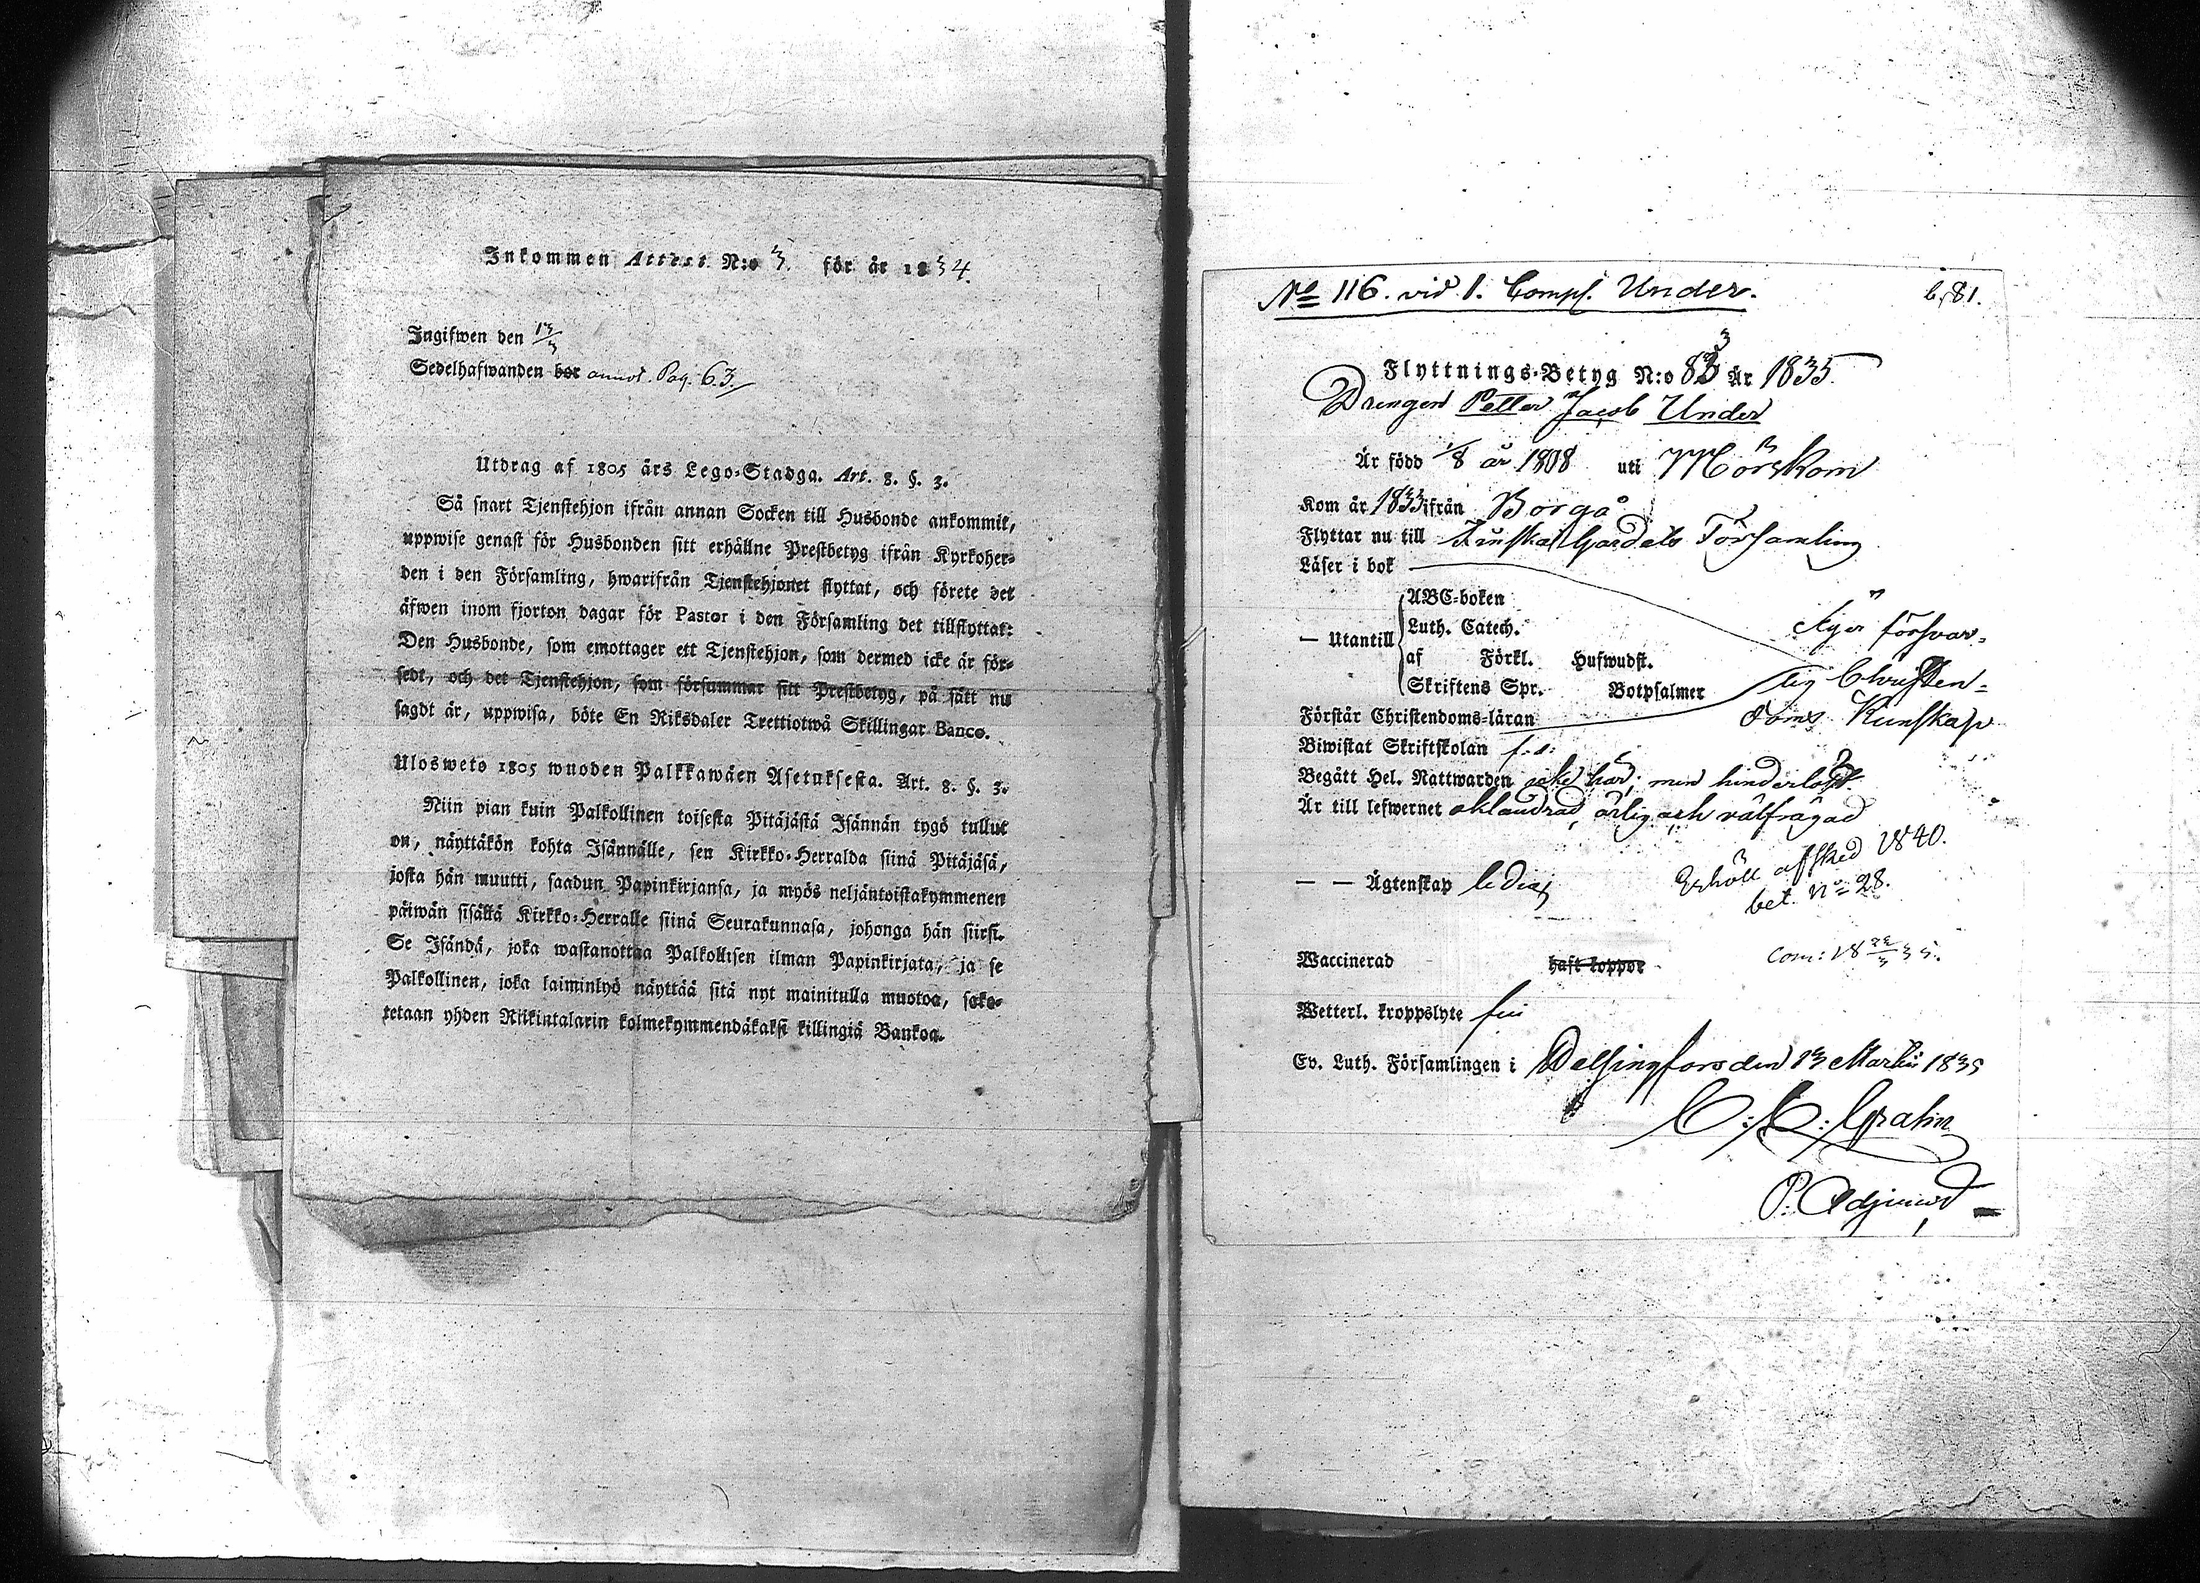 Inkommen Attest N:o 3. för år 1834.
Ingifwen den 13/3
Sedelhafwanden bor annot. Pag. 63.
Utdrag af 1805 års Lego-Stadga. Art. 8. §. 3.
Så snart Tjenstehjon ifrån annan Socken till Husbonde ankommit,
uppwise genast för Husbonden sitt erhållne Prestbetyg ifrån Kyrkoher-
den i den Församling, hwarifrån Tjenstehjonet flyttat, och förete det
äfwen inom fjorton dagar för Pastor i den Församling det tillflyttat:
Den Husbonde, som emottager ett Tjenstehjon, som dermed icke är för-
sedt, och det Tjenstehjon, som försummar sitt Prestbetyg, på sätt nu
sagdt är, uppwisa, böte En Riksdaler Trettiotwå Skillingar Banco.
Ulosweto 1805 wuoden Palkkawäen Asetuksesta. Art. 8. §. 3.
Niin pian kuin Palkollinen toisesta Pitäjästä Isännän tygö tullut
on, näyttäkön kohta Isännälle, sen Kirkko-Herralda siinä Pitäjäsä,
josta hän muutti, saadun Papinkirjansa, ja myös neljäntoistakymmenen
päiwän sisällä Kirkko-Herralle siinä Seurakunnasa, johonga hän siirsi.
Se Isändä, joka wastanottaa Palkollisen ilman Papinkirjata, ja se
Palkollinen, joka laiminlyö näyttää sitä nyt mainitulla muotoa, sako-
tetaan yhden Riikintalarin kolmekymmendäkaksi killingiä Bankoa.
No 116. vid 1. Comp. Under.
b. 81.
Flyttnings-Betyg N:o 83 År 1835
Drengen Petter Jacob Under
Är född 1/8 år 1808 uti Mörskom
Kom år 1833 ifrån Borgå
Flyttar nu till Finska Gardets Församling
Läser i bok
ABC-boken
Luth. Catech.
— Utantill
af Förkl. Hufwudst.
Skriftens Spr. Botpsalmer
Äger försvar-
lig Christen-
doms Kunskap
Förstår Christendoms-läran
Biwistat Skriftskolan
Begått Hel. Nattwarden icke här; men hinderlöst.
Är till lefwernet oklandrad, ärlig och välfrägad
— — Ägtenskap ledig
Erhöll afsked 1840.
bet. No 28.
Waccinerad haft koppor
Com: 18 22/3 35.
Wetterl. kroppslyte fri
Ev. Luth. Församlingen i Helsingfors den 13 Martii 1835
C: C: Grahn
P. Adjunct